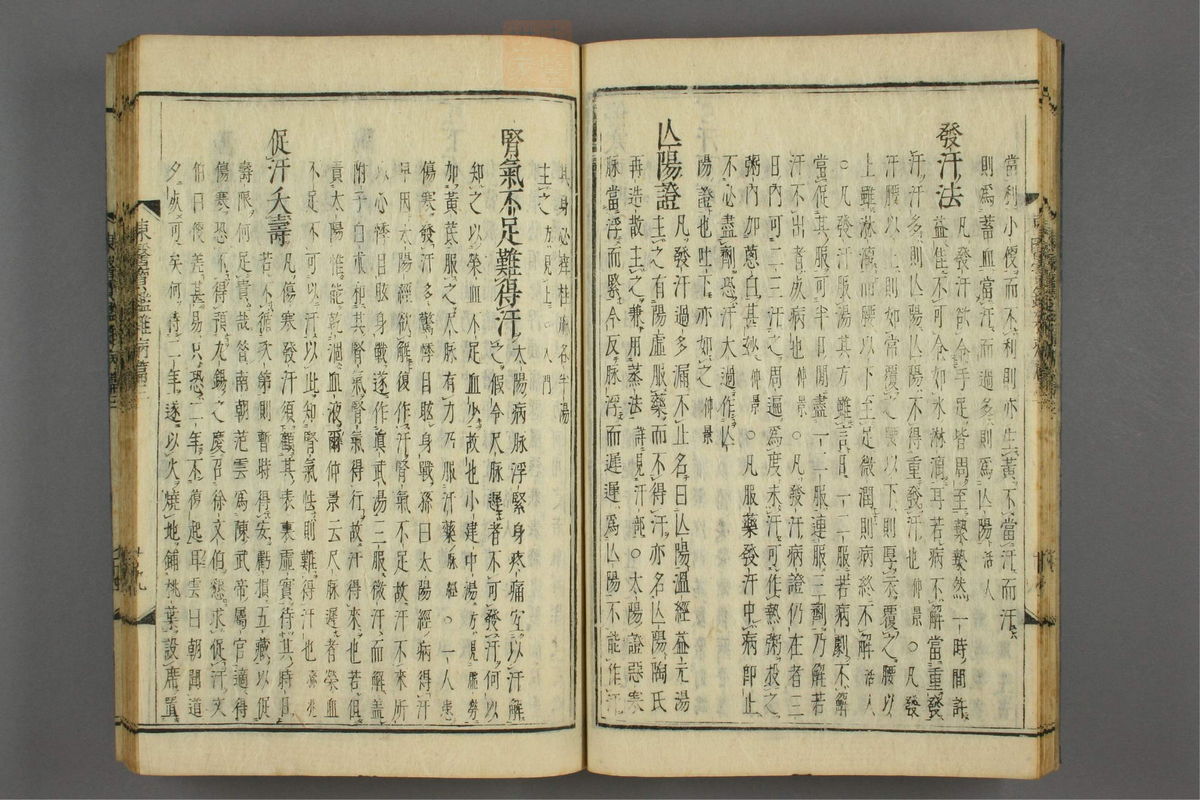 當利小便而不利則亦生黃不當汗而汗
則爲蓄血當汗而過多則爲亾陽活人
發汗法凡發汗欲令手足皆周至漐漐然一時間許
益佳不可令如水淋漓耳若病不解當重發
汗汗多則亾陽亾陽不得重發汗也仲景○凡發
汗腰以上則如常覆之腰以下則厚衣覆之腰以
上雖淋漓而腰以下至足微潤則病終不解活人
○凡發汗服湯其方雖言日二三服若病劇不解
當促其間可半日間盡二三服連服三劑乃解若
汗不出者成病也仲景○凡發汗病證仍在者三
日內可二三汗之周遍爲度未汗可作熱粥投之
粥內加葱白甚妙仲景○凡服藥發汗中病即止
不必盡劑恐汗大過作亾
陽證也吐下亦如之仲景
亾陽證凡發汗過多漏不止名曰亾陽溫經益元湯
主之有陽虛服藥而不得汗亦名亾陽陶氏
再造散主之兼用蒸法詳見汗部○太陽證惡寒
脉當浮而緊今反脉浮而遲遲爲亾陽不能作汗
其身必痒桂麻各半湯
主之方見上○入門
腎氣不足難得汗太陽病脉浮緊身疼痛宜以汗解
之假令尺脉遲者不可發汗何以
知之以榮血不足血少故也小建中湯方見虛勞
加黃茋服之尺脉有力乃服汗藥脉經○一人患
傷寒發汗多驚悸目眩身戰孫曰太陽經病得汗
早因太陽經欲解復作汗腎氣不足故汗不來所
以心悸目眩身戰遂作眞武湯三服微汗而解盖
附子白朮和其腎氣腎氣得行故汗得來也若但
責太陽惟能乾涸血液爾仲景云尺脉遲者榮血
不足不可以汗以此知腎氣怯則難得汗也孫兆
促汗夭壽凡傷寒發汗須觀其表裏虛實待其時日
若不循次第則暫時得安虧損五藏以促
壽限何足貴哉昔南朝范雲爲陳武帝屬官適得
傷寒恐不得預九錫之慶召徐文伯懇求促汗文
伯曰便差甚易只恐二年不復起耳雲曰朝聞道
夕死可矣何待二年遂以火燒地鋪桃葉設席置
東醫寶鑑雜病篇